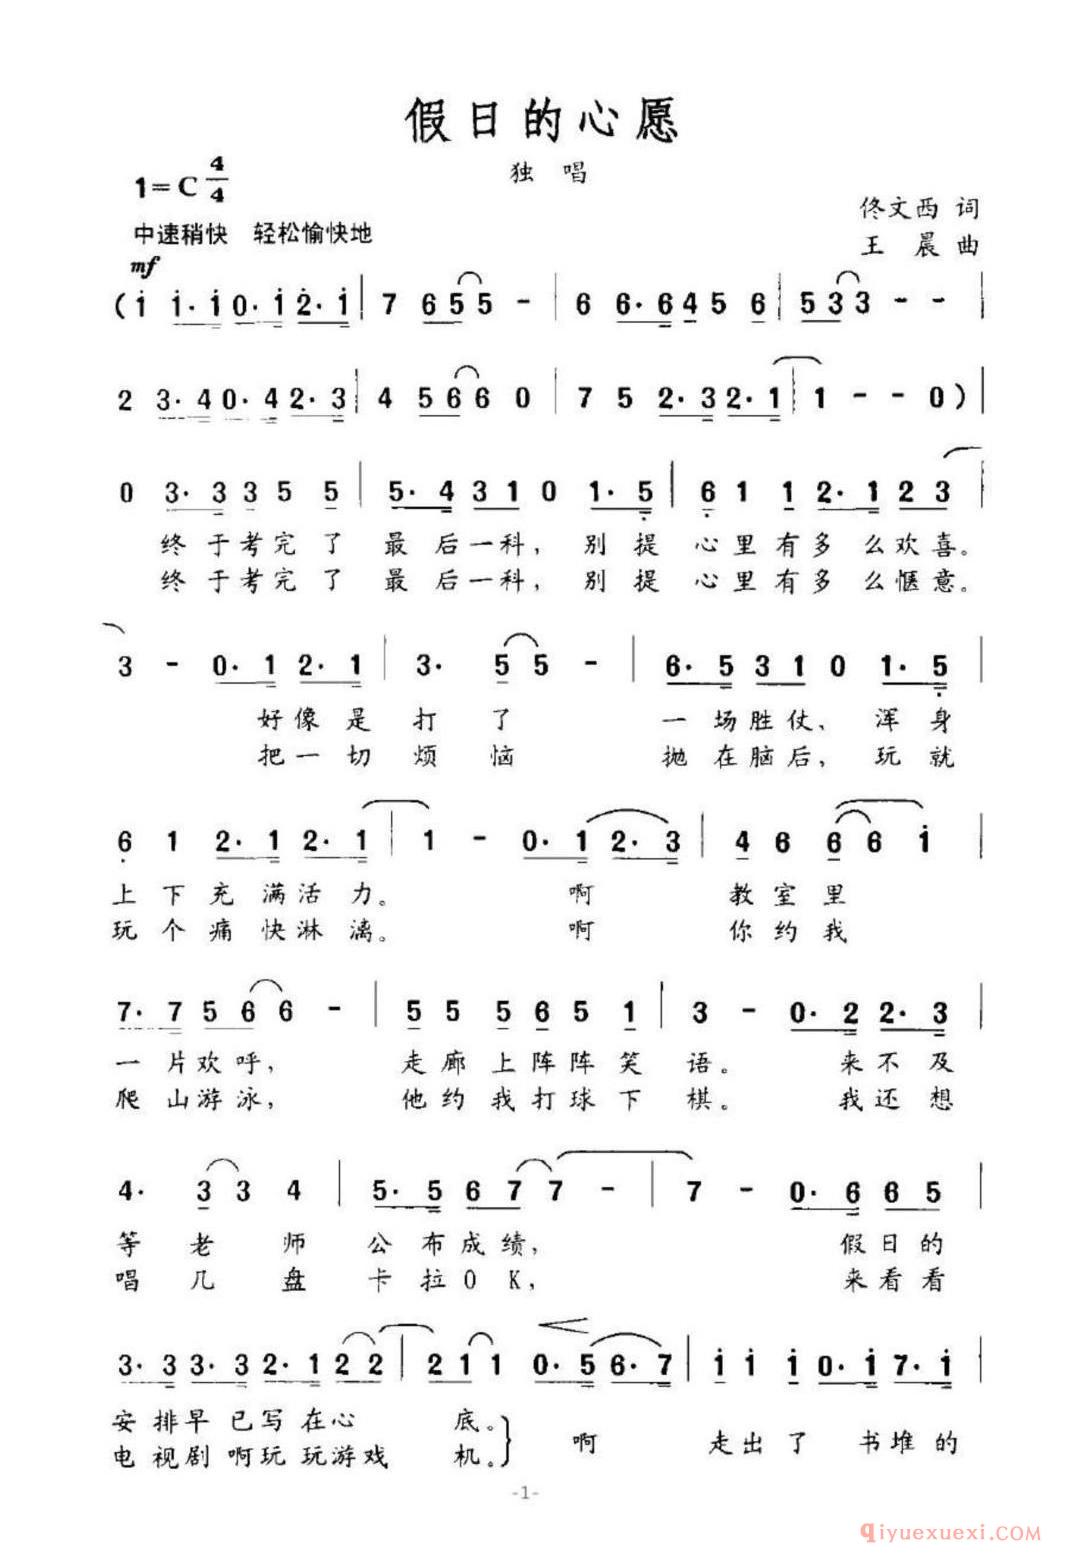 假日的心愿
独 唱
1=C 4/4
佟文西 词
中速稍快 轻松愉快地
王 晨 曲
mf
(i i·i 0·i 2·i | 7 6 5 5 - | 6 6·6 4 5 6 | 5 3 3 - - |
2 3·4 0·4 2·3 | 4 5 6 6 0 | 7 5 2·3 2·1 | 1 - - 0) |
0 3·3 3 5 5 | 5·4 3 1 0 1·5 | 6 1 1 2·1 2 3 |
终于考完了 最后一科, 别提 心里有多么欢喜。
终于考完了 最后一科, 别提 心里有多么惬意。
3 - 0·1 2·1 | 3· 5 5 - | 6·5 3 1 0 1·5 |
好像是打了 一场胜仗、 浑身
把一切烦恼 抛在脑后, 玩就
6 1 2·1 2·1 | 1 - 0·1 2·3 | 4 6 6 6 i |
上下充满活力。 啊 教室里
玩个痛快淋漓。 啊 你约我
7·7 5 6 6 - | 5 5 5 6 5 1 | 3 - 0·2 2·3 |
一片欢呼, 走廊上阵阵笑语。 来不及
爬山游泳, 他约我打球下棋。 我还想
4· 3 3 4 | 5·5 6 7 7 - | 7 - 0·6 6 5 |
等老师公布成绩, 假日的
唱几盘卡拉OK, 来看看
3·3 3·3 2·1 2 2 | 2 1 1 0·5 6·7 | i i i 0·i 7·i |
安排早已写在心底。
电视剧啊玩玩游戏机。} 啊 走出了 书堆的
-1-
qiyuexuexi.COM